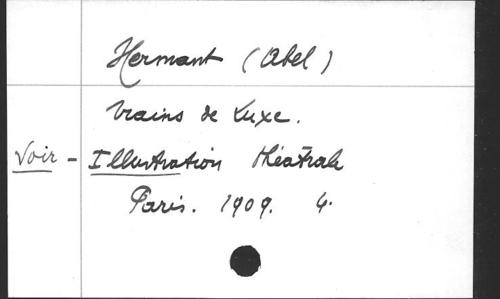 Hermant (Abel)
Trains de Luxe.
Voir - Illustration théatrale
Paris. 1909. 4.